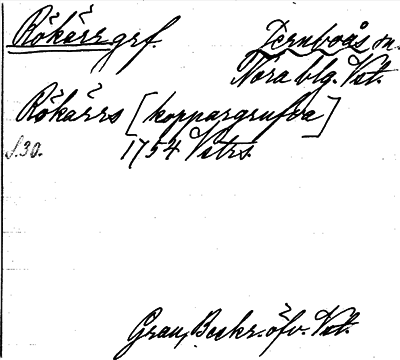 Rökärrgrf. Jernboås sn.
Nora blg. Vstm.
Rökärrs [koppargrufva]
s. 30. 1754 Vetrs.
Grau, Beskr. öfv. Vstm.